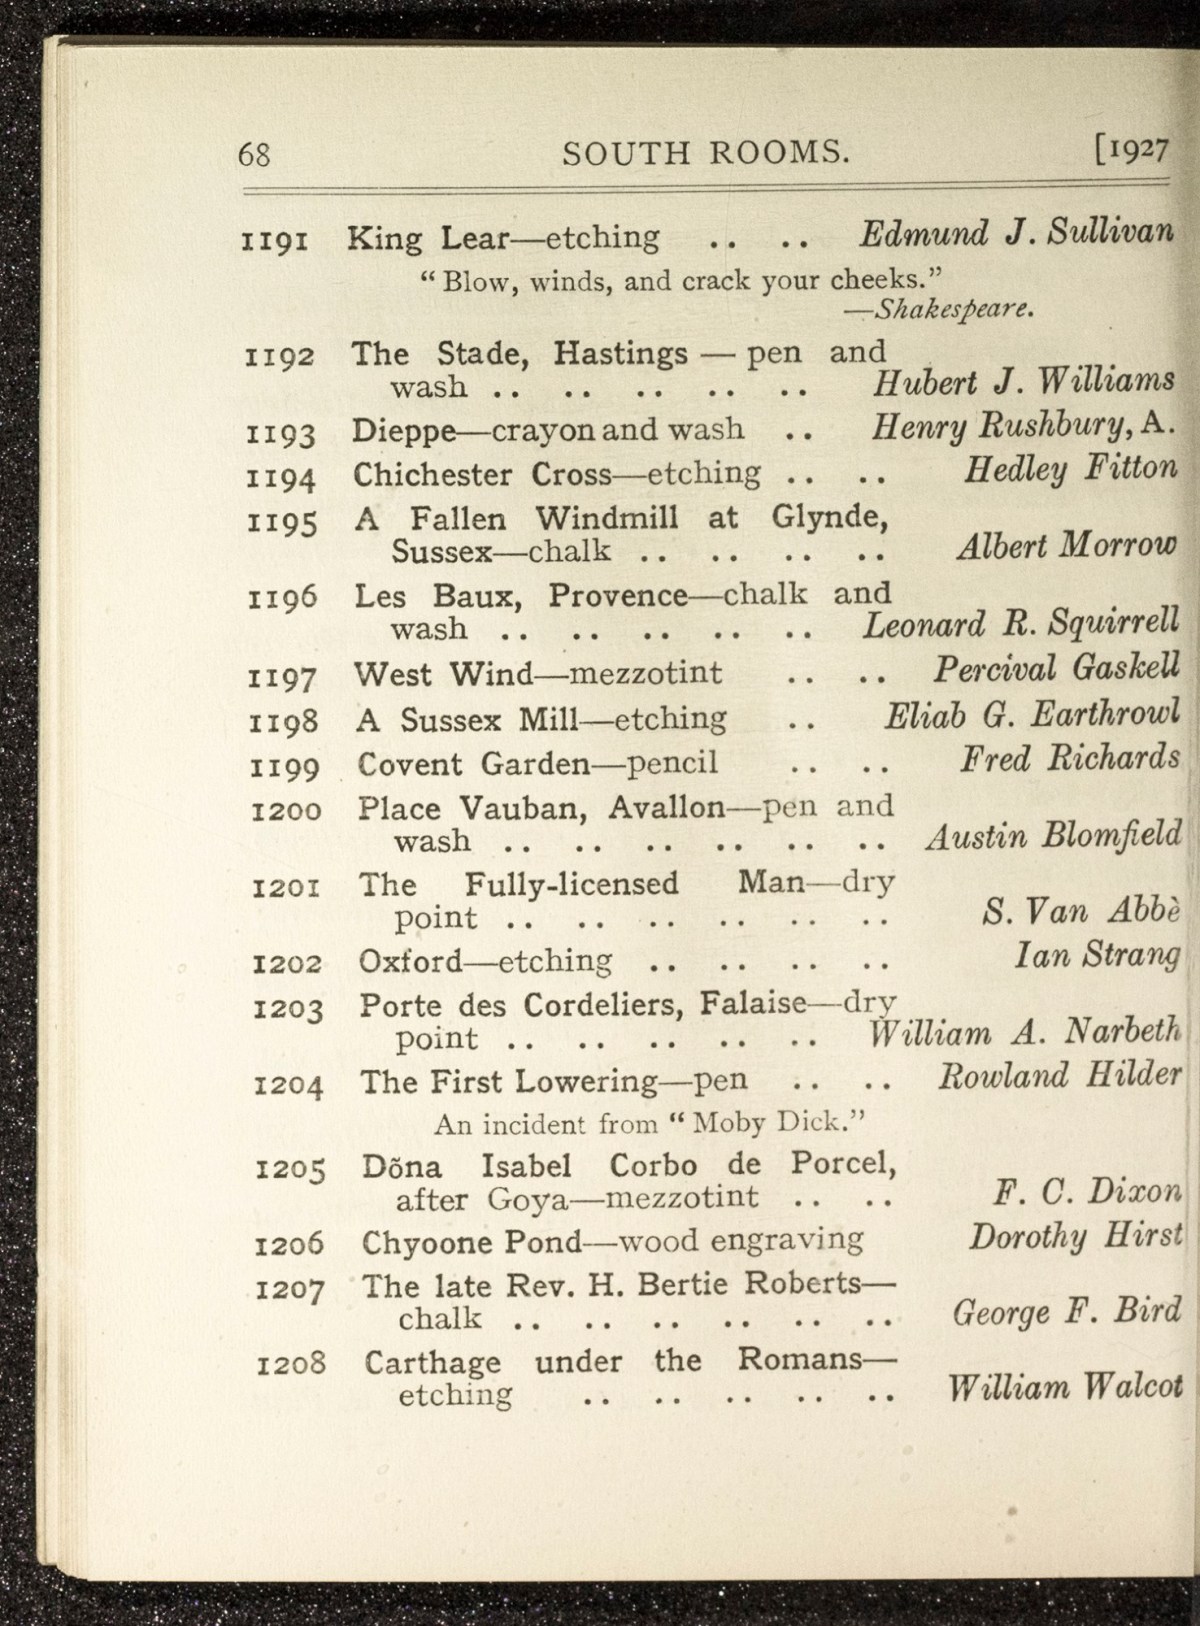 68 SOUTH ROOMS. [1927
1191 King Lear—etching .. .. Edmund J. Sullivan
“Blow, winds, and crack your cheeks.”
—Shakespeare.
1192 The Stade, Hastings — pen and
wash .. .. .. .. .. Hubert J. Williams
1193 Dieppe—crayon and wash .. Henry Rushbury, A.
1194 Chichester Cross—etching .. .. Hedley Fitton
1195 A Fallen Windmill at Glynde,
Sussex—chalk .. .. .. .. Albert Morrow
1196 Les Baux, Provence—chalk and
wash .. .. .. .. .. Leonard R. Squirrell
1197 West Wind—mezzotint .. .. Percival Gaskell
1198 A Sussex Mill—etching .. Eliab G. Earthrowl
1199 Covent Garden—pencil .. .. Fred Richards
1200 Place Vauban, Avallon—pen and
wash .. .. .. .. .. .. Austin Blomfield
1201 The Fully-licensed Man—dry
point .. .. .. .. .. .. S. Van Abbè
1202 Oxford—etching .. .. .. .. Ian Strang
1203 Porte des Cordeliers, Falaise—dry
point .. .. .. .. .. William A. Narbeth
1204 The First Lowering—pen .. .. Rowland Hilder
An incident from “Moby Dick.”
1205 Dõna Isabel Corbo de Porcel,
after Goya—mezzotint .. .. F. C. Dixon
1206 Chyoone Pond—wood engraving Dorothy Hirst
1207 The late Rev. H. Bertie Roberts—
chalk .. .. .. .. .. .. George F. Bird
1208 Carthage under the Romans—
etching .. .. .. .. .. William Walcot